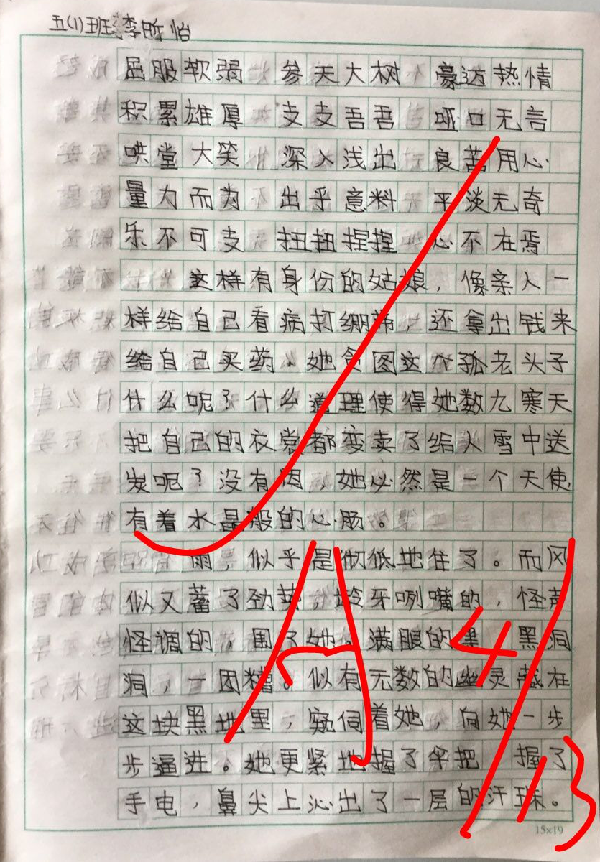 五(1)班李昕怡
屈服软弱 参天大树 豪迈热情
积累雄厚 支支吾吾 哑口无言
哄堂大笑 深入浅出 良苦用心
量力而为 出乎意料 平淡无奇
乐不可支 扭扭捏捏 心不在焉
这样有身份的姑娘，像亲人一
样给自己看病打绷带，还拿出钱来
给自己买药。她贪图这个孤老头子
什么呢？什么道理使得她数九寒天
把自己的衣裳都变卖了给人雪中送
炭呢？没有因 她必然是一个天使
有着水晶般的心肠。
雨，似乎是彻低地住了。而风
似又蓄了劲劲，龄牙咧嘴的，怪声
怪调的，围了她 满眼的黑 黑洞
洞，一团糟。似有无数的幽灵藏在
这块黑地里，窥伺着她 向她一步
步逼进。她更紧地握了伞把 握了
手电，鼻尖上沁出了一层的汗珠。
A 4/13
15×19